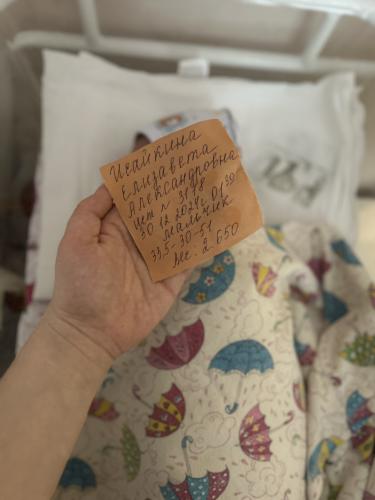 Исайкина
Елизавета
Александровна
ист № 3178
30.12.2024г 01 30
мальчик
33,5-30-51
вес. 2 650